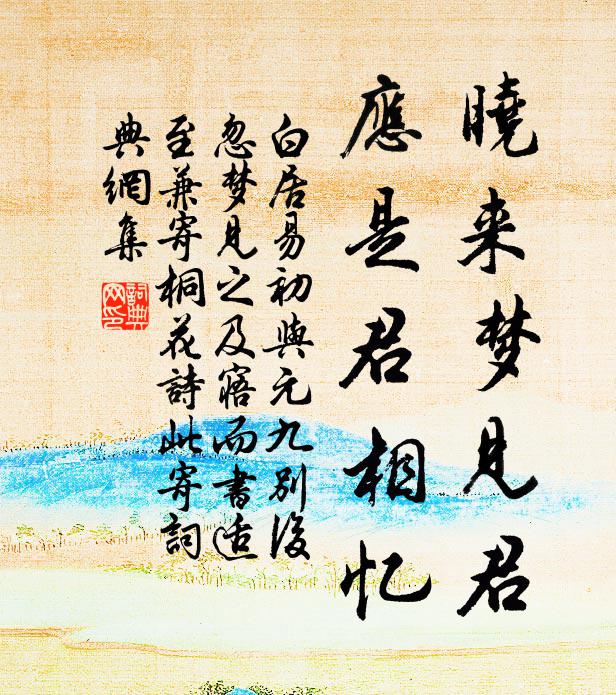 曉来梦見君
應是君相忆
白居易初與元九别後
忽梦見之及寤而書适
至兼寄桐花詩此寄詞
典網集
詞典
网印